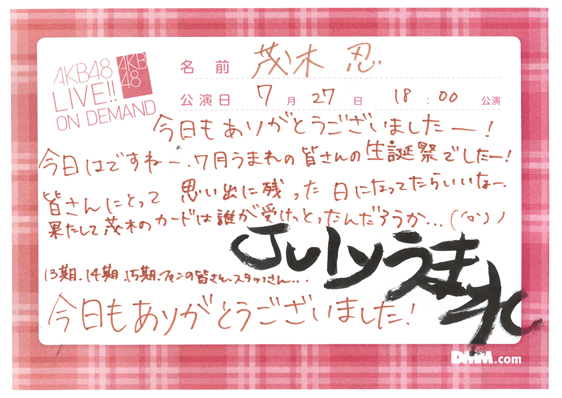 AKB48
LIVE!!
ON DEMAND
AKB
48
名前 茂木 忍
公演日 7月27日 18:00 公演
今日もありがとうございましたー!
今日はですねー、7月うまれの皆さんの生誕祭でしたー!
皆さんにとって 思い出に残った 日になってたらいいなー
果たして茂木のカードは誰が受けとったんだろうか…
Julyうまれ
13期、14期、15期、ファンの皆さん、スタッフさん…
今日もありがとうございました!
DMM.com